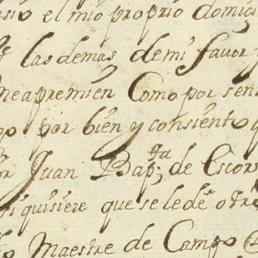 el mio proprio domici
las demas de mi favor
me apremien Como por sen
por bien y consiento
Juan Bap.ta de Escor
quisiere que se le de otro
Maestre de Campo